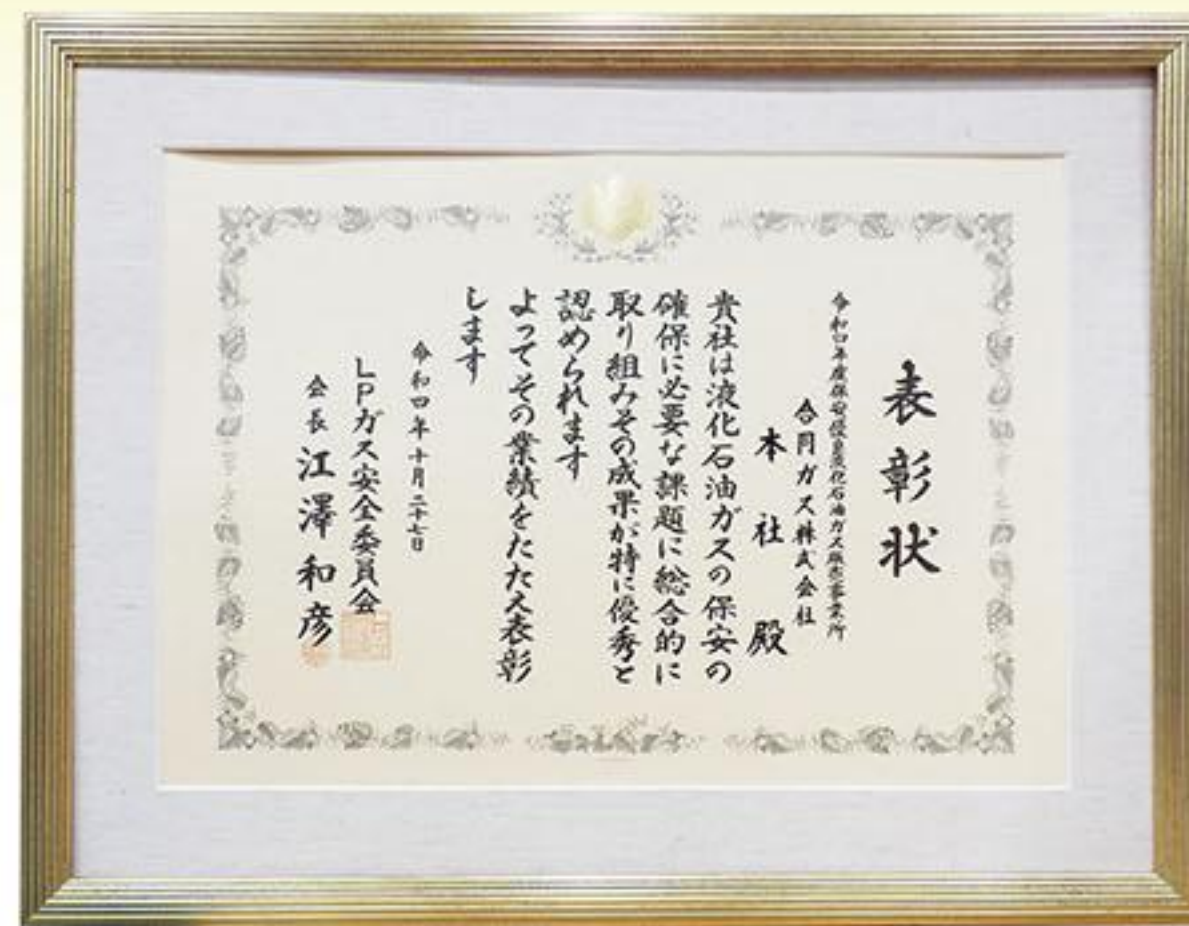 表彰状
令和四年度保安優良液化石油ガス販売事業所
合同ガス株式会社
本社殿
貴社は液化石油ガスの保安の
確保に必要な課題に総合的に
取り組みその成果が特に優秀と
認められます
よってその業績をたたえ表彰
します
令和四年十月二十七日
LPガス安全委員会
会長 江澤和彦